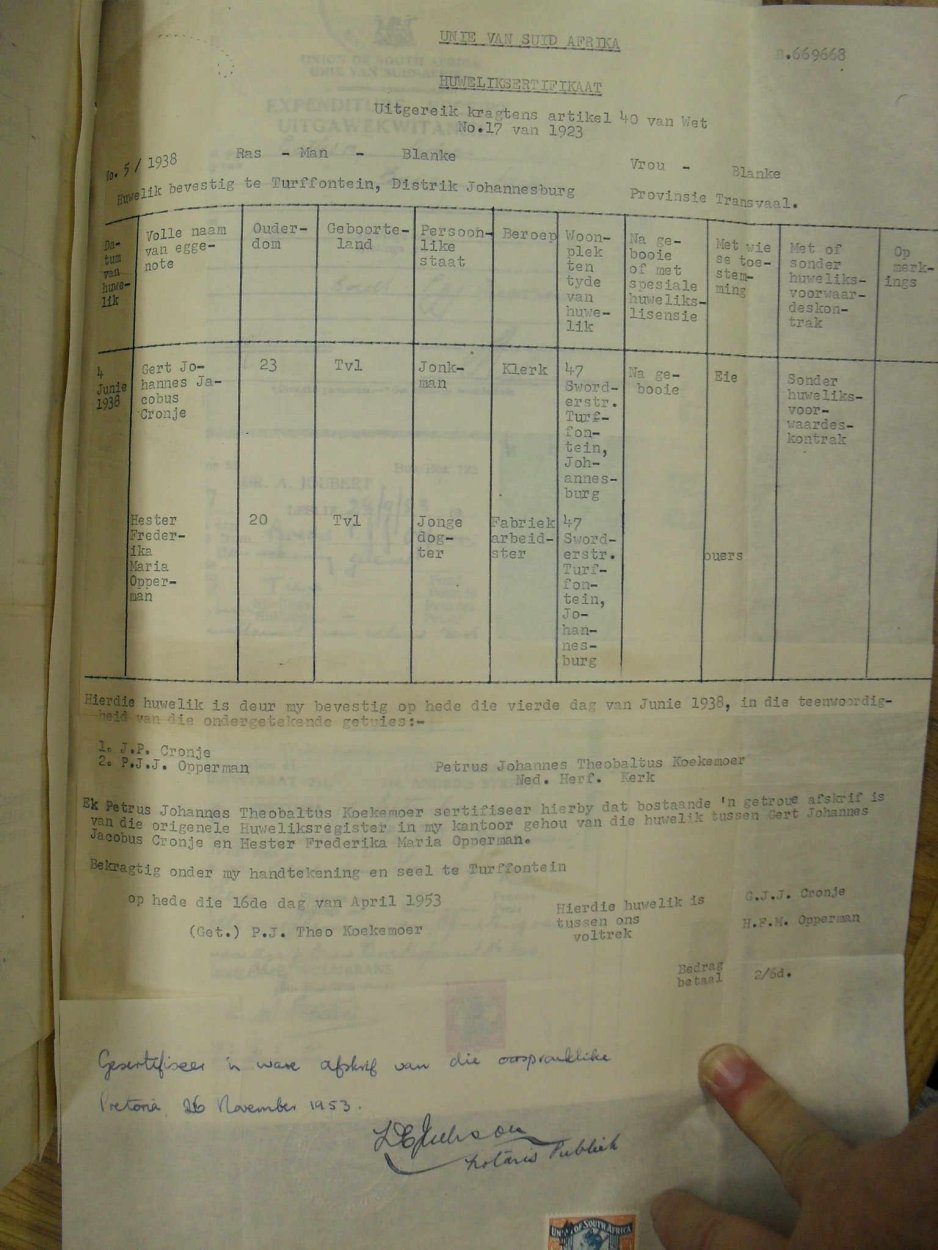 UNIE VAN SUID AFRIKA
.669668
HUWELIKSERTIFIKAAT
Uitgereik kragtens artikel 40 van Wet
No.17 van 1923
No. 5/1938 Ras - Man - Blanke Vrou - Blanke
Huwelik bevestig te Turffontein, Distrik Johannesburg Provinsie Transvaal.
Da-
tum
van
huwe-
lik
Volle naam
van egge-
note
Ouder-
dom
Geboorte-
land
Persoon-
like
staat
Beroep
Woon-
plek
ten
tyde
van
huwe-
lik
Na ge-
booie
of met
spesiale
huweliks-
lisensie
Met wie
se toe-
stem-
ming
Met of
sonder
huweliks-
voorwaar-
deskon-
trak
Op
merk-
ings
4
Junie
1938
Gert Jo-
hannes Ja-
cobus
Cronje
23
Tvl
Jonk-
man
Klerk
47
Sword-
erstr.
Turf-
fon-
tein,
Joh-
annes-
burg
Na ge-
booie
Eie
Sonder
huweliks-
voor-
waardes-
kontrak
Hester
Freder-
ika
Maria
Opper-
man
20
Tvl
Jonge
dog-
ter
Fabriek
arbeid-
ster
47
Sword-
erstr.
Turf-
fon-
tein,
Jo-
han-
nes-
burg
ouers
Hierdie huwelik is deur my bevestig op hede die vierde dag van Junie 1938, in die teenwoordig-
heid van die ondergetekende getuies:-
1. J.P. Cronje
2. P.J.J. Opperman
Petrus Johannes Theobaltus Koekemoer
Ned. Herf. Kerk
Ek Petrus Johannes Theobaltus Koekemoer sertifiseer hierby dat bostaande 'n getroue afskrif is
van die origenele Huweliksregister in my kantoor gehou van die huwelik tussen Gert Johannes
Jacobus Cronje en Hester Frederika Maria Opperman.
Bekragtig onder my handtekening en seel te Turffontein
op hede die 16de dag van April 1953
(Get.) P.J. Theo Koekemoer
Hierdie huwelik is
tussen ons
voltrek
G.J.J. Cronje
H.F.M. Opperman
Bedrag
betaal
2/6d.
Gesertifiseer 'n ware afskrif van die oorspronklike
Pretoria 26 November 1953.
Notaris Publiek
UNION OF SOUTH AFRICA